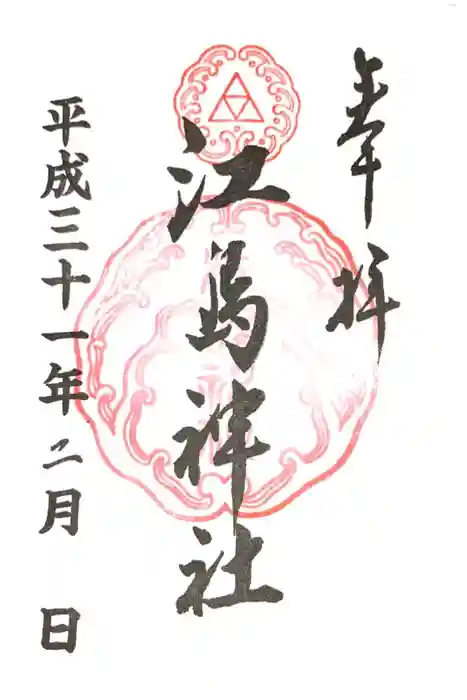 奉拝
江島神社
平成三十一年二月　日